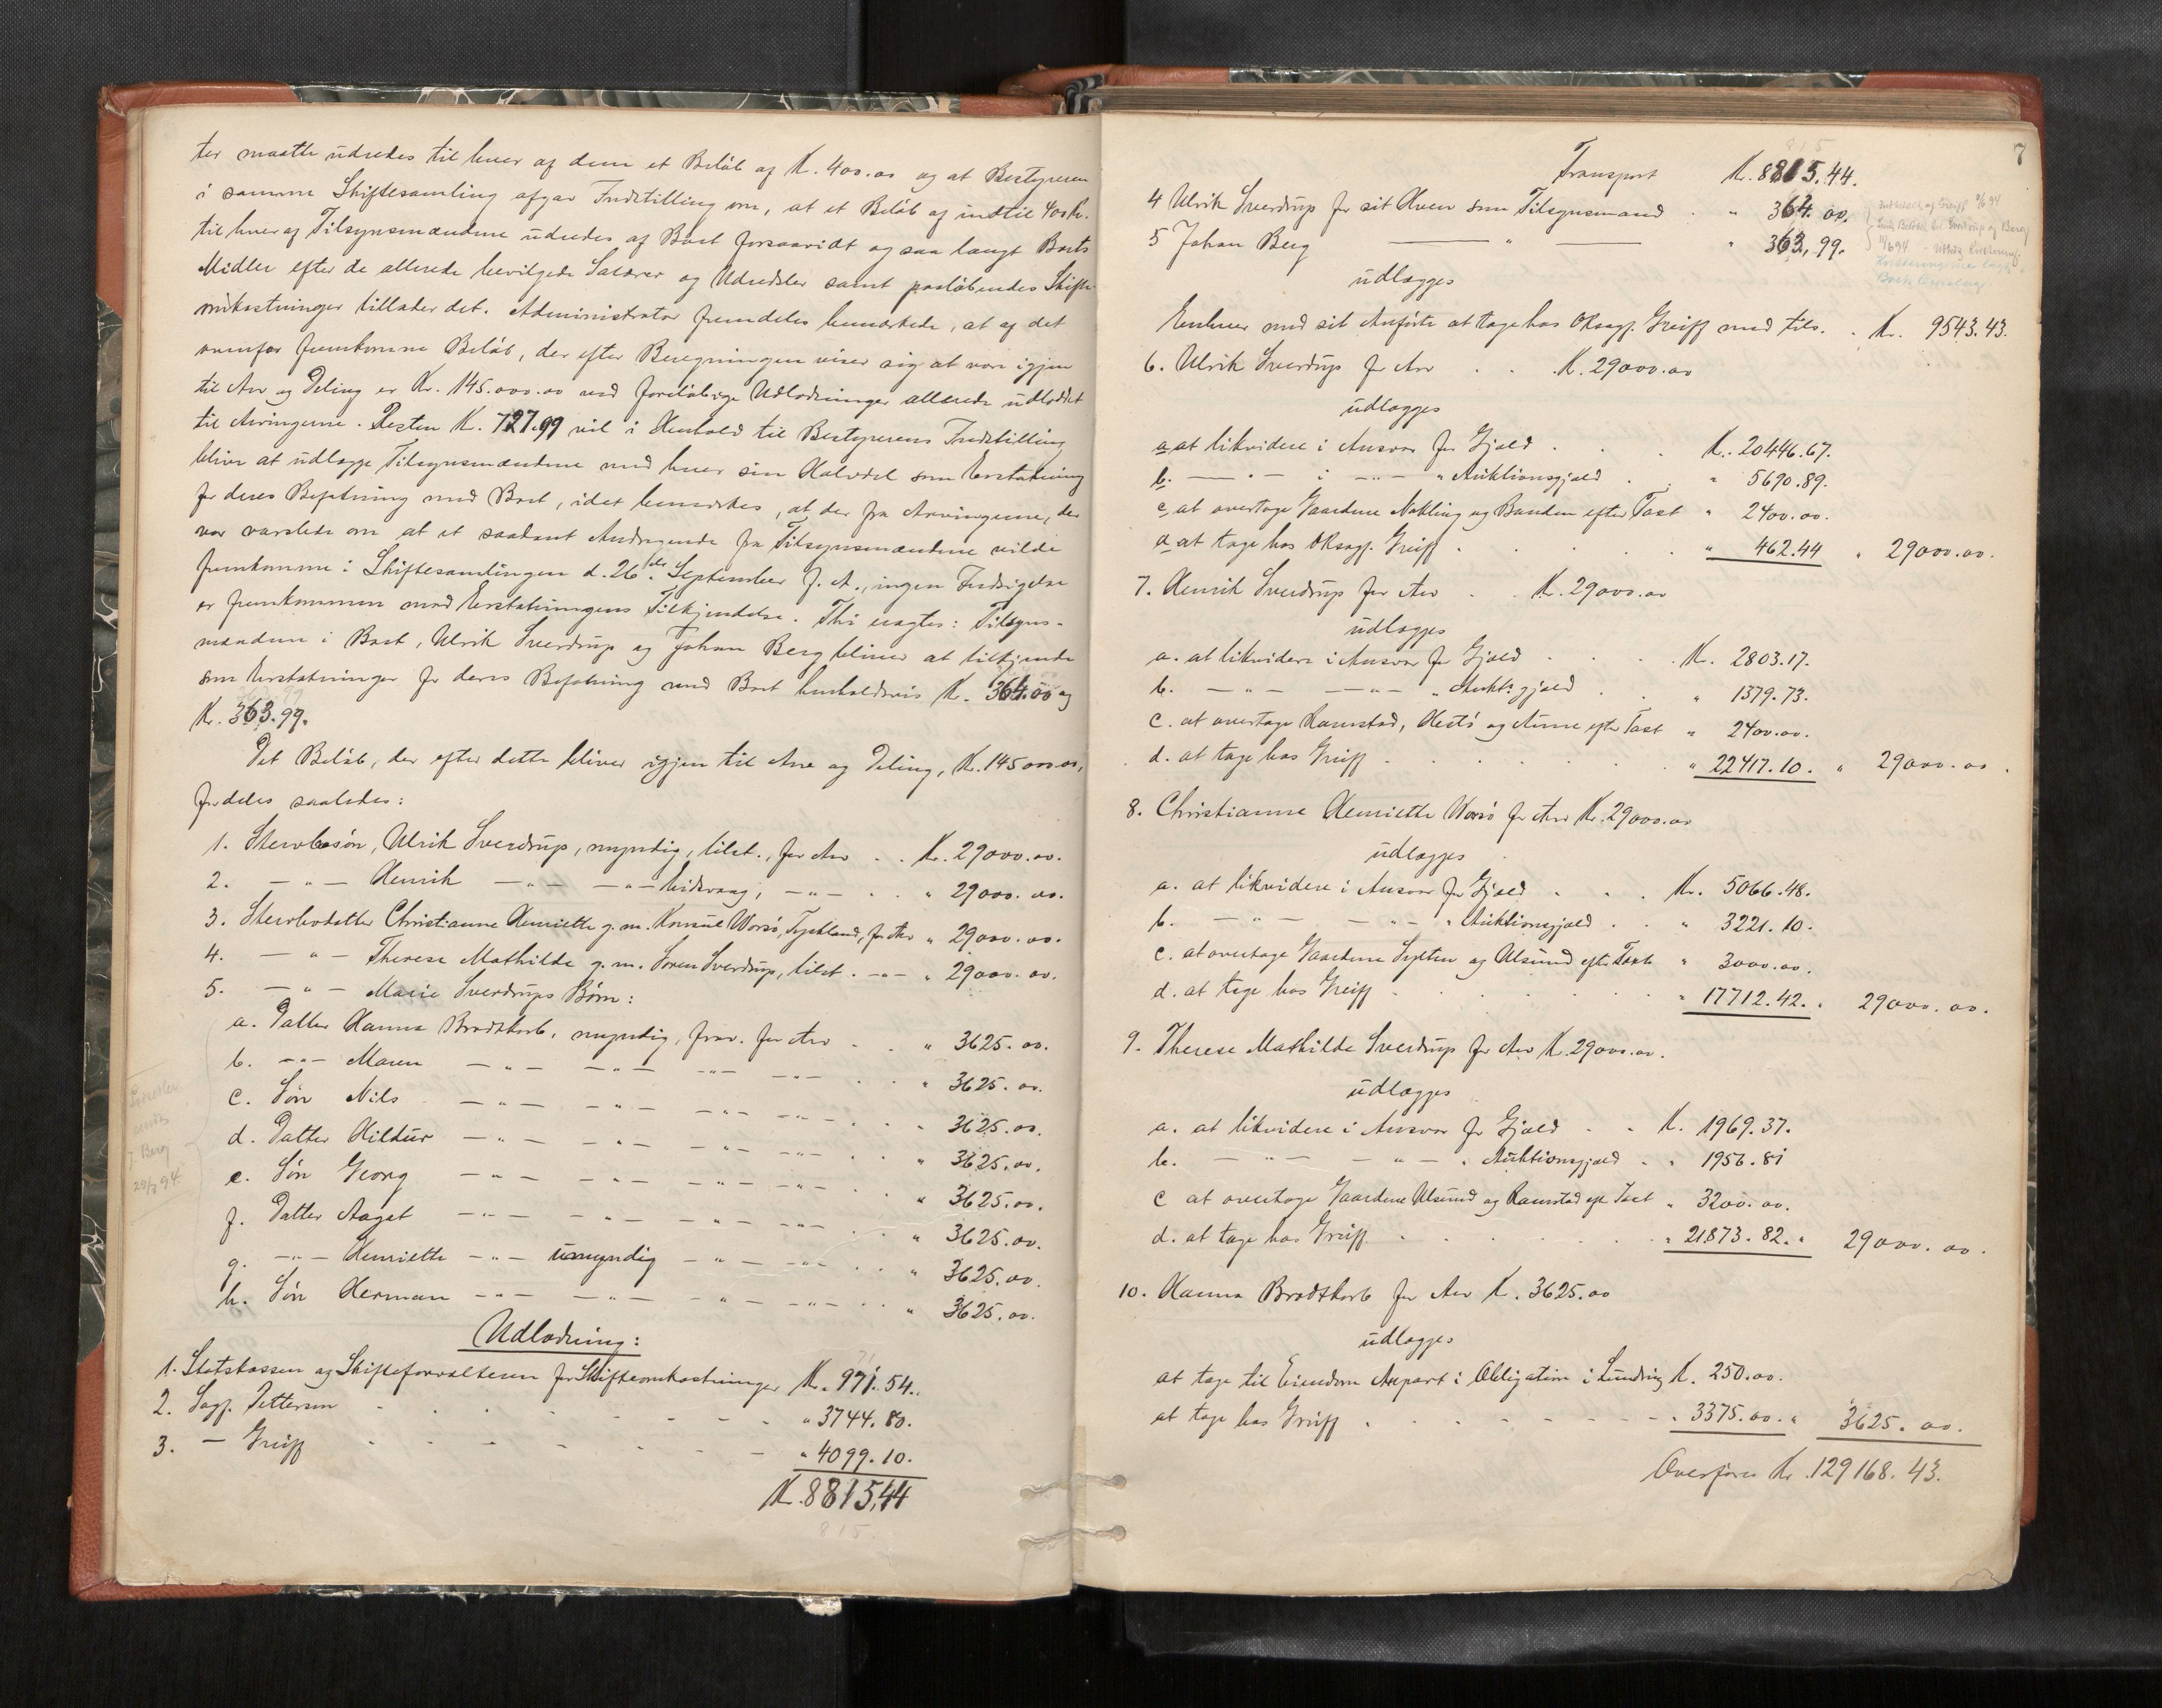 ter maatte udredes til hver af dem et Beløb af K. 400.00 og at Bestyreren
i samme Skiftesamling afgav Indstilling om, at et Beløb af indtil 400 Kr.
til hver af Tilsynsmændene udredes af Boet forsaavidt og saa langt Boets
Midler efter de allerede bevilgede Salærer og Udredsler samt paaløbendes Skifte-
omkostninger tillader det. Administrator fremdeles bemærkede, at af det
ovenfor fremkomne Beløb, der efter Beregningen viser sig at være igjen
til Arv og Deling er Kr. 145.000.00 ved foreløbige Udlodninger allerede udloddet
til Arvingerne. Resten K. 727.99 vil i Henhold til Bestyrerens Indstilling
blive at udlægge Tilsynsmændene med hver sin Halvdel som Erstatning
for deres Befatning med Boet, idet bemærkes, at der fra Arvingerne, der
var varslede om at et saadant Andragende fra Tilsynsmændene vilde
fremkomme i Skiftesamlingen d. 26de September f. A., ingen Indsigelse
er fremkommen mod Erstatningens Tilkjendelse. Thi eragtes: Tilsyns-
mændene i Boet, Ulrik Sverdrup og Johan Berg bliver at tilkjende
som Erstatninger for deres Befatning med Boet henholdsvis K. 364.00 og
Kr. 363.99.
Det Beløb, der efter dette bliver igjen til Arv og Deling, K. 145000.00,
fordeles saaledes:
1. Stervbosøn, Ulrik Sverdrup, myndig, tilst., for Arv . . K. 29000.00.
2. — " — Henrik — " — — " — , — " — . . " 29000.00.
3. Stervbodatter Christianne Henriette g. m. Konsul Worsø, Tydskland, for Arv " 29000.00.
4. — " — Therese Mathilde g. m. Søren Sverdrup, tilst. — " — " 29000.00.
5. — " — Marie Sverdrups Børn:
a. Datter Hanna Brodtkorb, myndig, frav. for Arv . . " 3625.00.
b. — " — Maren — " — — " — — " — — " — . . " 3625.00.
c. Søn Nils — " — — " — — " — — " — . . " 3625.00.
d. Datter Hildur — " — — " — — " — — " — . . " 3625.00.
e. Søn Georg — " — — " — — " — — " — . . " 3625.00.
f. Datter Aagot — " — — " — — " — — " — . . " 3625.00.
g. — " — Henriette — " — umyndig — " — — " — . . " 3625.00.
h. Søn Herman — " — — " — — " — — " — . . " 3625.00.
J. Berg
94.
Udlodning:
1. Statskassen og Skifteforvalteren for Skifteomkostninger Kr. 971.54.
2. Sagf. Pettersen . . . . " 3744.80.
3. — Greiff . . . . " 4099.10.
K. 8815,44
815.
7
815
Transport K. 8815.44.
4 Ulrik Sverdrup for sit Krav som Tilsynsmand . " 364.00.
5 Johan Berg — " — " 363.99.
udlægges
Enhver med sit Anførte at tage hos ORsagf. Greiff med tils. . Kr. 9543.43.
6. Ulrik Sverdrup for Arv . . K. 29000.00
udlægges
a at likvidere i Ansvar for Gjæld . . . K. 20446.67.
b. — " — i — " — " Auktionsgjæld . . " 5690.89.
c at overtage Gaardene Nakling og Banken efter Taxt " 2400.00.
d at tage hos ORsagf. Greiff . . . . " 462.44 " 29000.00.
7. Henrik Sverdrup for Arv . . K. 29000.00
udlægges
a. at likvidere i Ansvar for Gjæld . . . K. 2803.17.
b. — " — — " — " Aukt.gjæld . . " 1379.73.
c. at overtage Ramstad, Hestø og Aune efter Taxt " 2400.00.
d. at tage hos Greiff . . . . " 22417.10. " 29000.00.
8. Christianne Henriette Worsø for Arv Kr. 29000.00
udlægges
a. at likvidere i Ansvar for Gjæld . . . K. 5066.48.
b. — " — — " — " Auktionsgjæld . . " 3221.10.
c. at overtage Gaardene Sylten og Ulsund efter Taxt " 3000.00.
d. at tage hos Greiff . . . . " 17712.42. " 29000.00.
9. Therese Mathilde Sverdrup for Arv K. 29000.00.
udlægges
a. at likvidere i Ansvar for Gjæld . . K. 1969.37.
b. — " — — " — " Auktionsgjæld . . " 1956.81
c at overtage Gaardene Ulsund og Ramstad eft. Taxt " 3200.00.
d. at tage hos Greiff . . . . " 21873.82. " 29000.00.
10. Hanna Brodtkorb for Arv K. 3625.00
udlægges
at tage til Eiendom Anpart i Obligation i K. 250.00.
at tage hos Greiff . . . . " 3375.00. " 3625.00.
Overføres Kr. 129168.43.